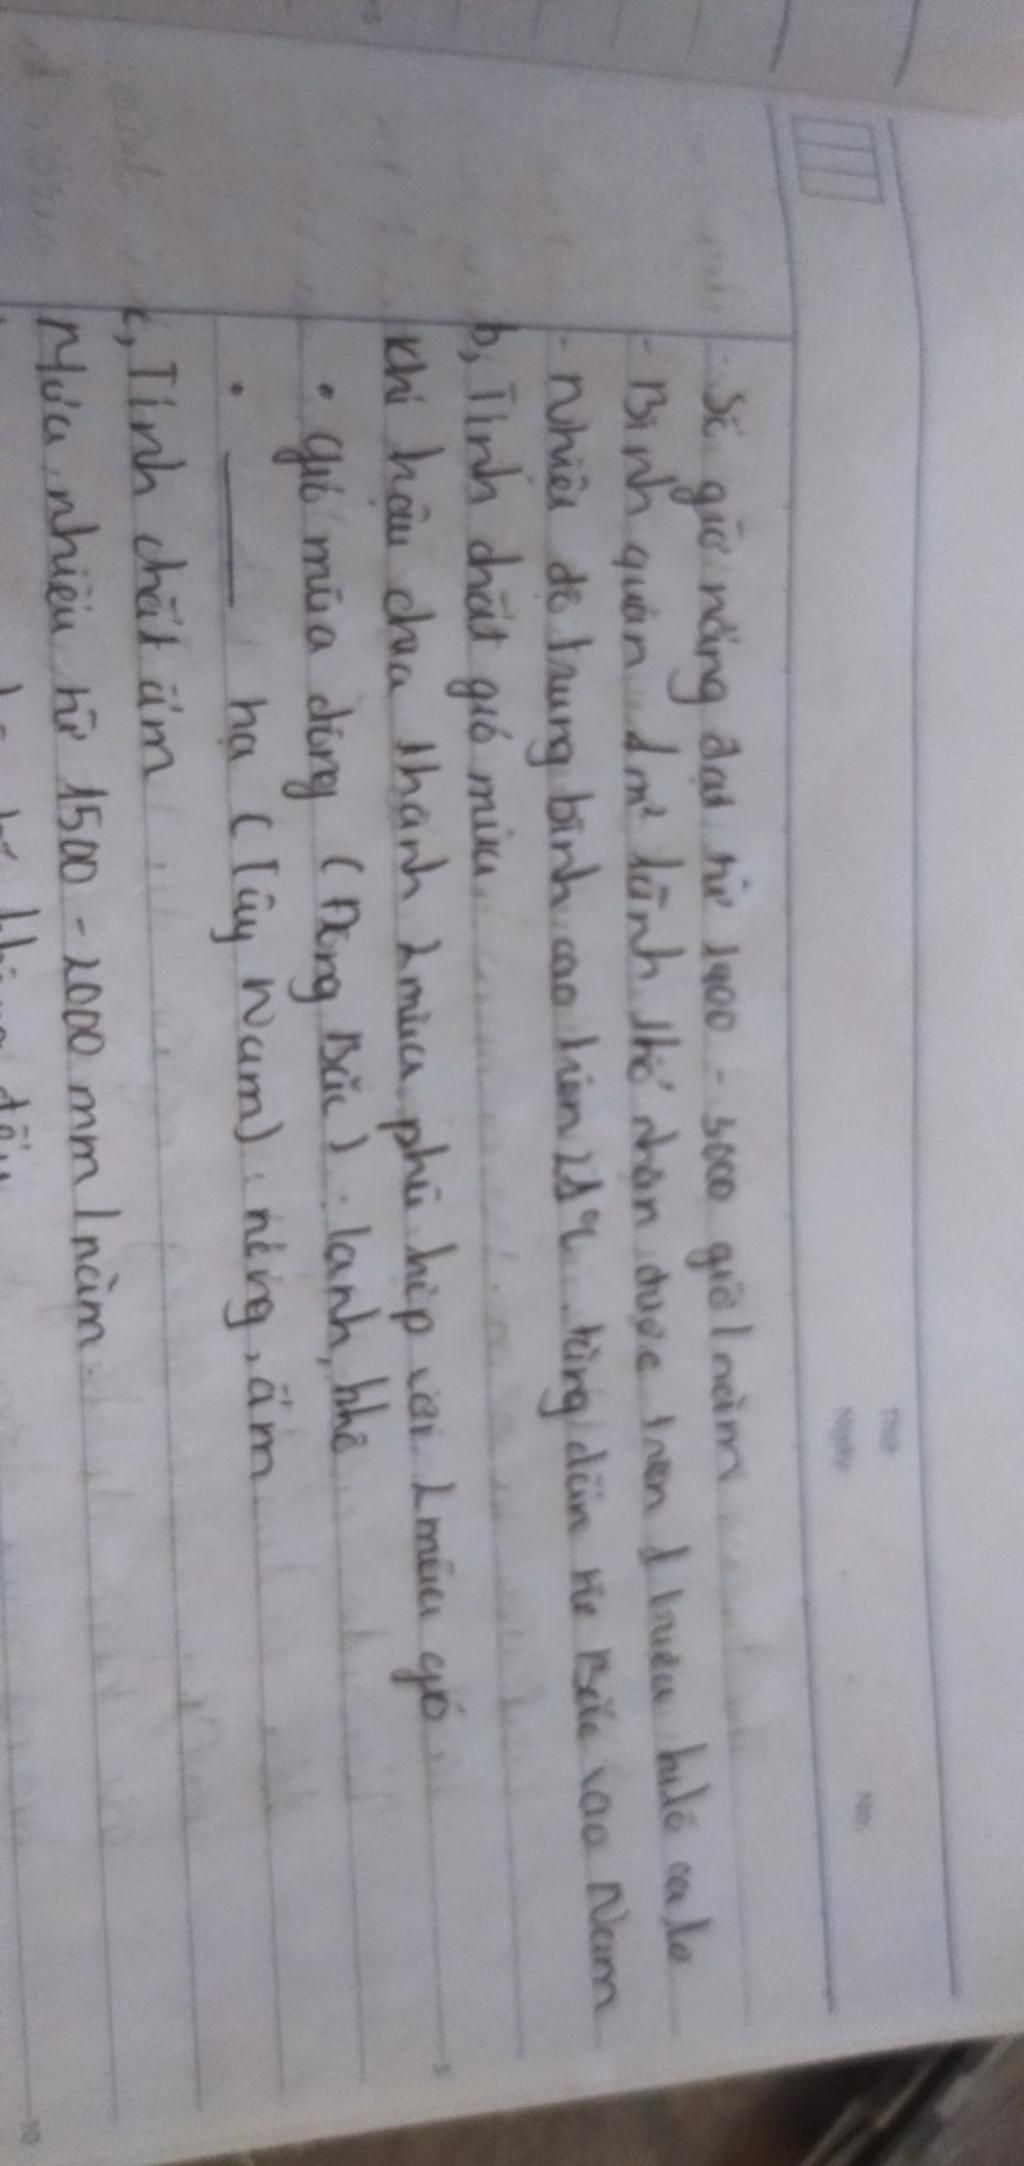 - Số giờ nắng đạt từ 1400 - 3000 giờ/năm
- Bình quân 1m² lãnh thổ nhận được trên 1 triệu kilô calo
- Nhiệt độ trung bình cao trên 21°C tăng dần từ Bắc vào Nam
b, Tính chất gió mùa
Khí hậu chia thành 2 mùa phù hợp với 2 mùa gió
• gió mùa đông (Đông Bắc): lạnh, khô
• ——— hạ (Tây Nam): nóng, ẩm
c, Tính chất ẩm
Mưa nhiều từ 1500 - 2000 mm/năm.
Thứ
Ngày
No.
5
10